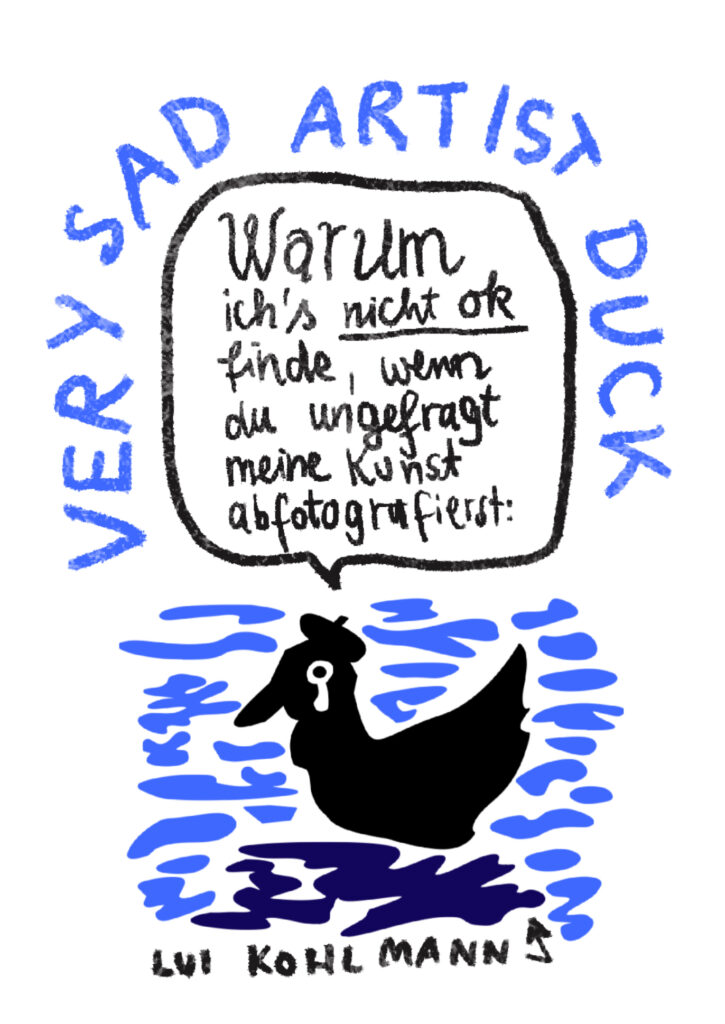 VERY SAD ARTIST DUCK
Warum
ich's nicht ok
finde, wenn
du ungefragt
meine Kunst
abfotografierst:
LUI KOHLMANN